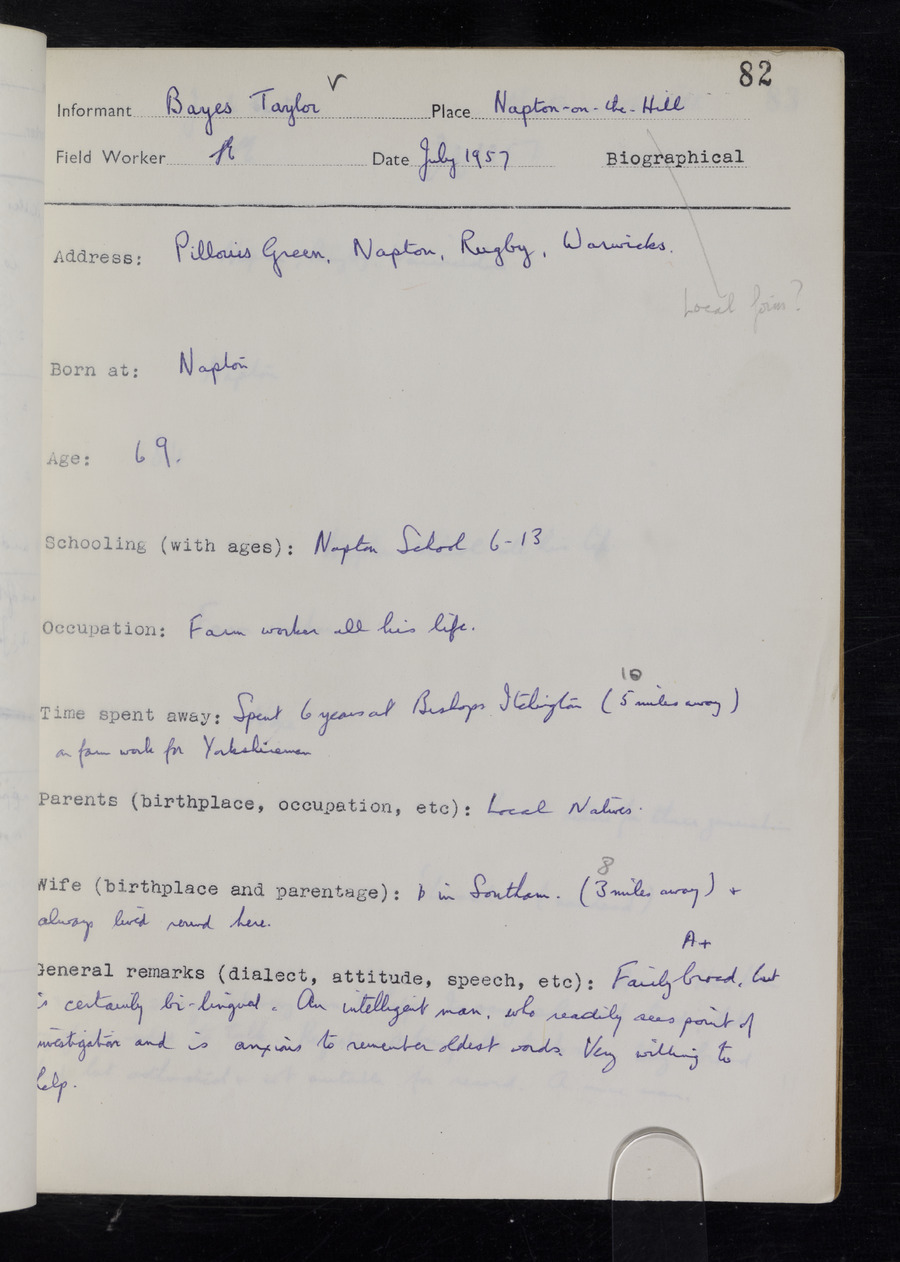 82
Informant Bayes Taylor ✓ Place Napton-on-the-Hill
Field Worker Date July 1957 Biographical
Address: Green, Napton, Rugby, Warwicks.
Local form?
Born at: Napton
Age: 69.
Schooling (with ages): Napton School 6-13
Occupation: Farm worker all his life.
10
Time spent away: Spent 6 years at Bishops Itchington (5 miles away)
on farm work for Yorkshireman
Parents (birthplace, occupation, etc): Local Natives.
8
Wife (birthplace and parentage): b in Southam. (3 miles away) +
always lived round here.
A+
General remarks (dialect, attitude, speech, etc): Fairly broad, but
is certainly bi-lingual. An intelligent man, who readily sees point of
investigation and is anxious to remember oldest words. Very willing to
help.